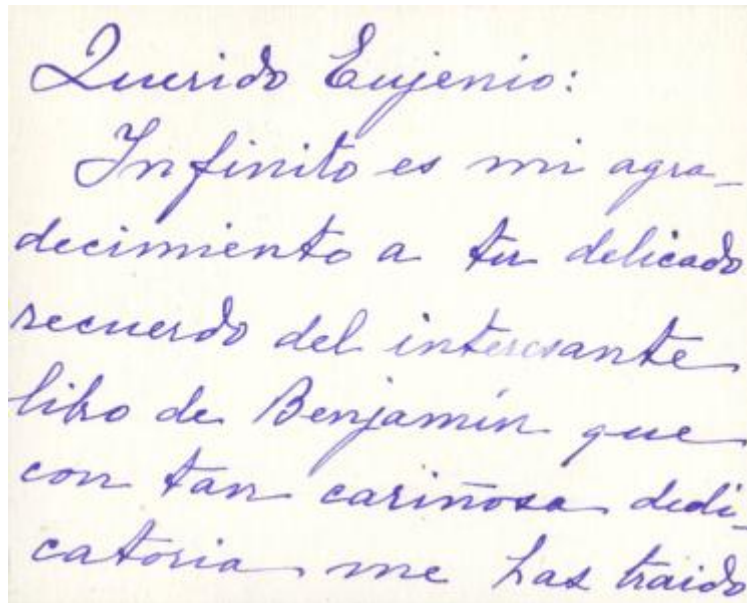 Querido Eujenio:
Infinito es mi agra-
decimiento a tu delicado
recuerdo del interesante
libro de Benjamín que
con tan cariñosa dedi-
catoria me has traido